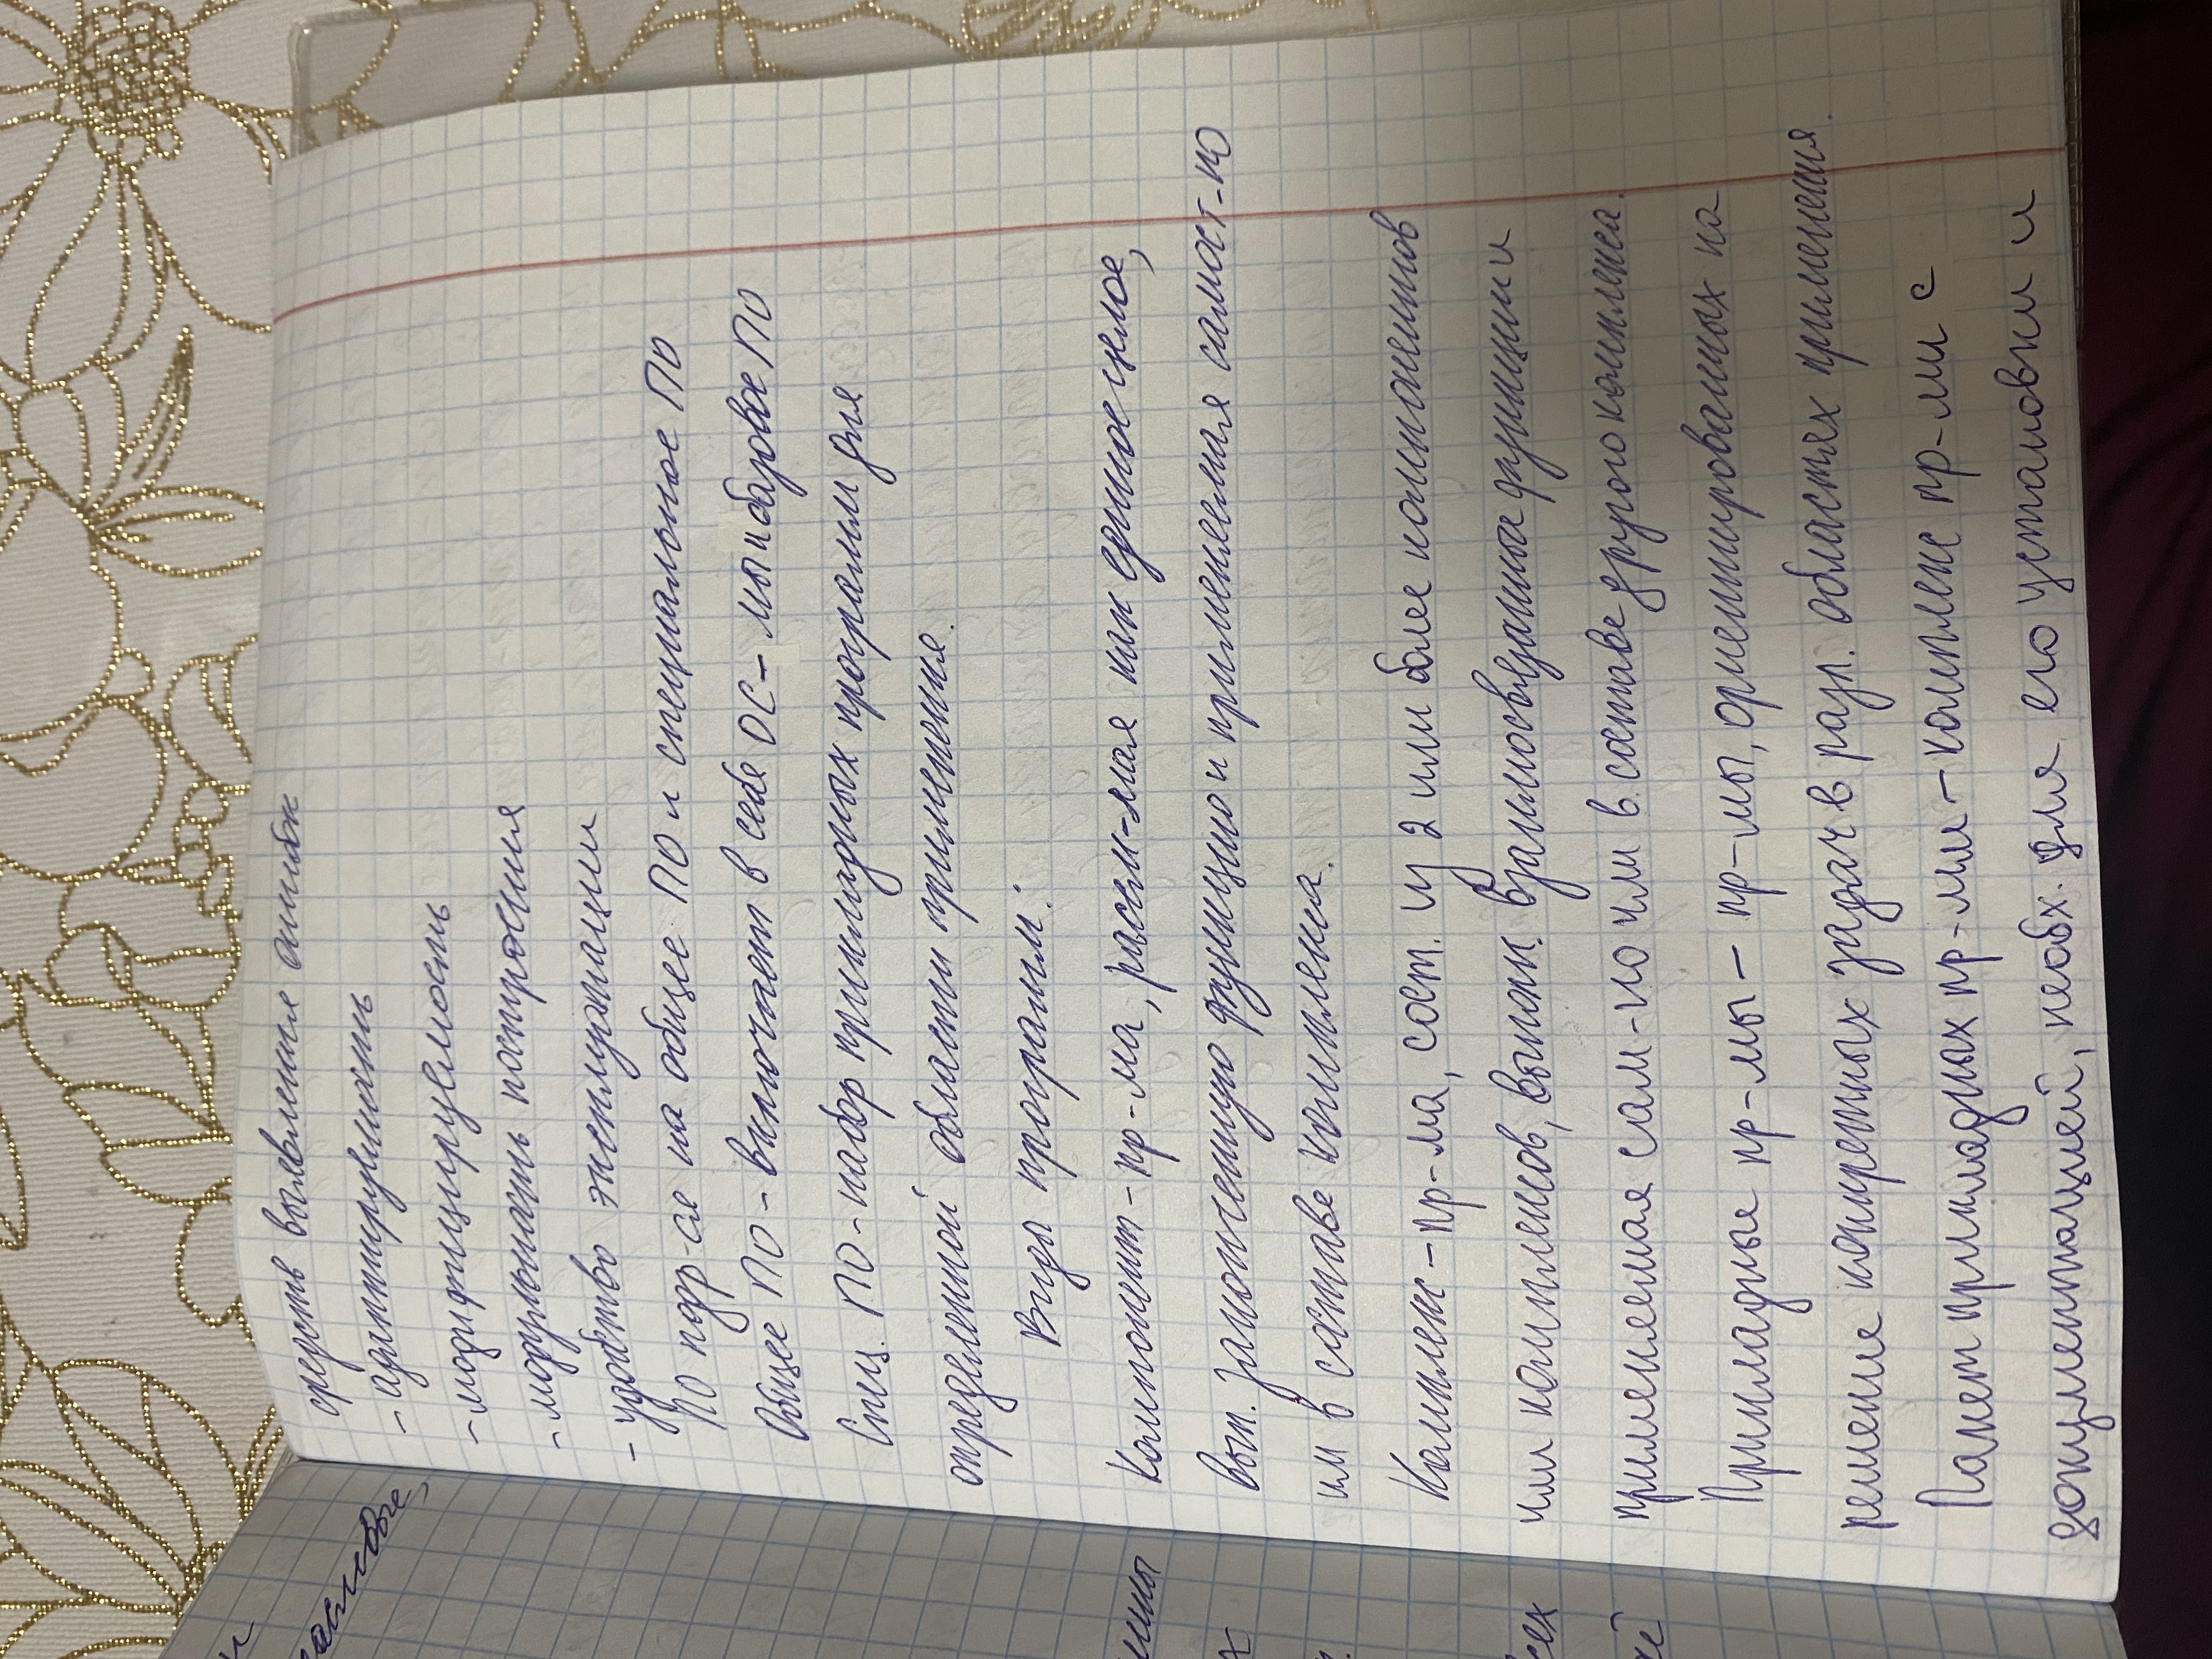 средств выявления ошибок
- адаптируемость
- модифицируемость
- модульность построения
- удобство эксплуатации
ПО подр-ся на общее ПО и специальное ПО
Общее ПО - включает в себя ОС-мы и базовое ПО
Спец. ПО - набор прикладных программ для
определенной области применения.
Виды программ:
Компонент - пр-ма, рассм-мая как единое целое,
вып. законченную функцию и применяемая самост-но
или в составе комплекса.
Комплекс - пр-ма, сост. из 2 или более компонентов
или комплексов, выполн. взаимосвязанные функции и
применяемая сам-но или в составе другого комплекса.
Прикладные пр-мы - пр-мы, ориентированных на
решение конкретных задач в разл. областях применения.
Пакет прикладных пр-мм - комплекс пр-мм с
документацией, необх. для его установки и